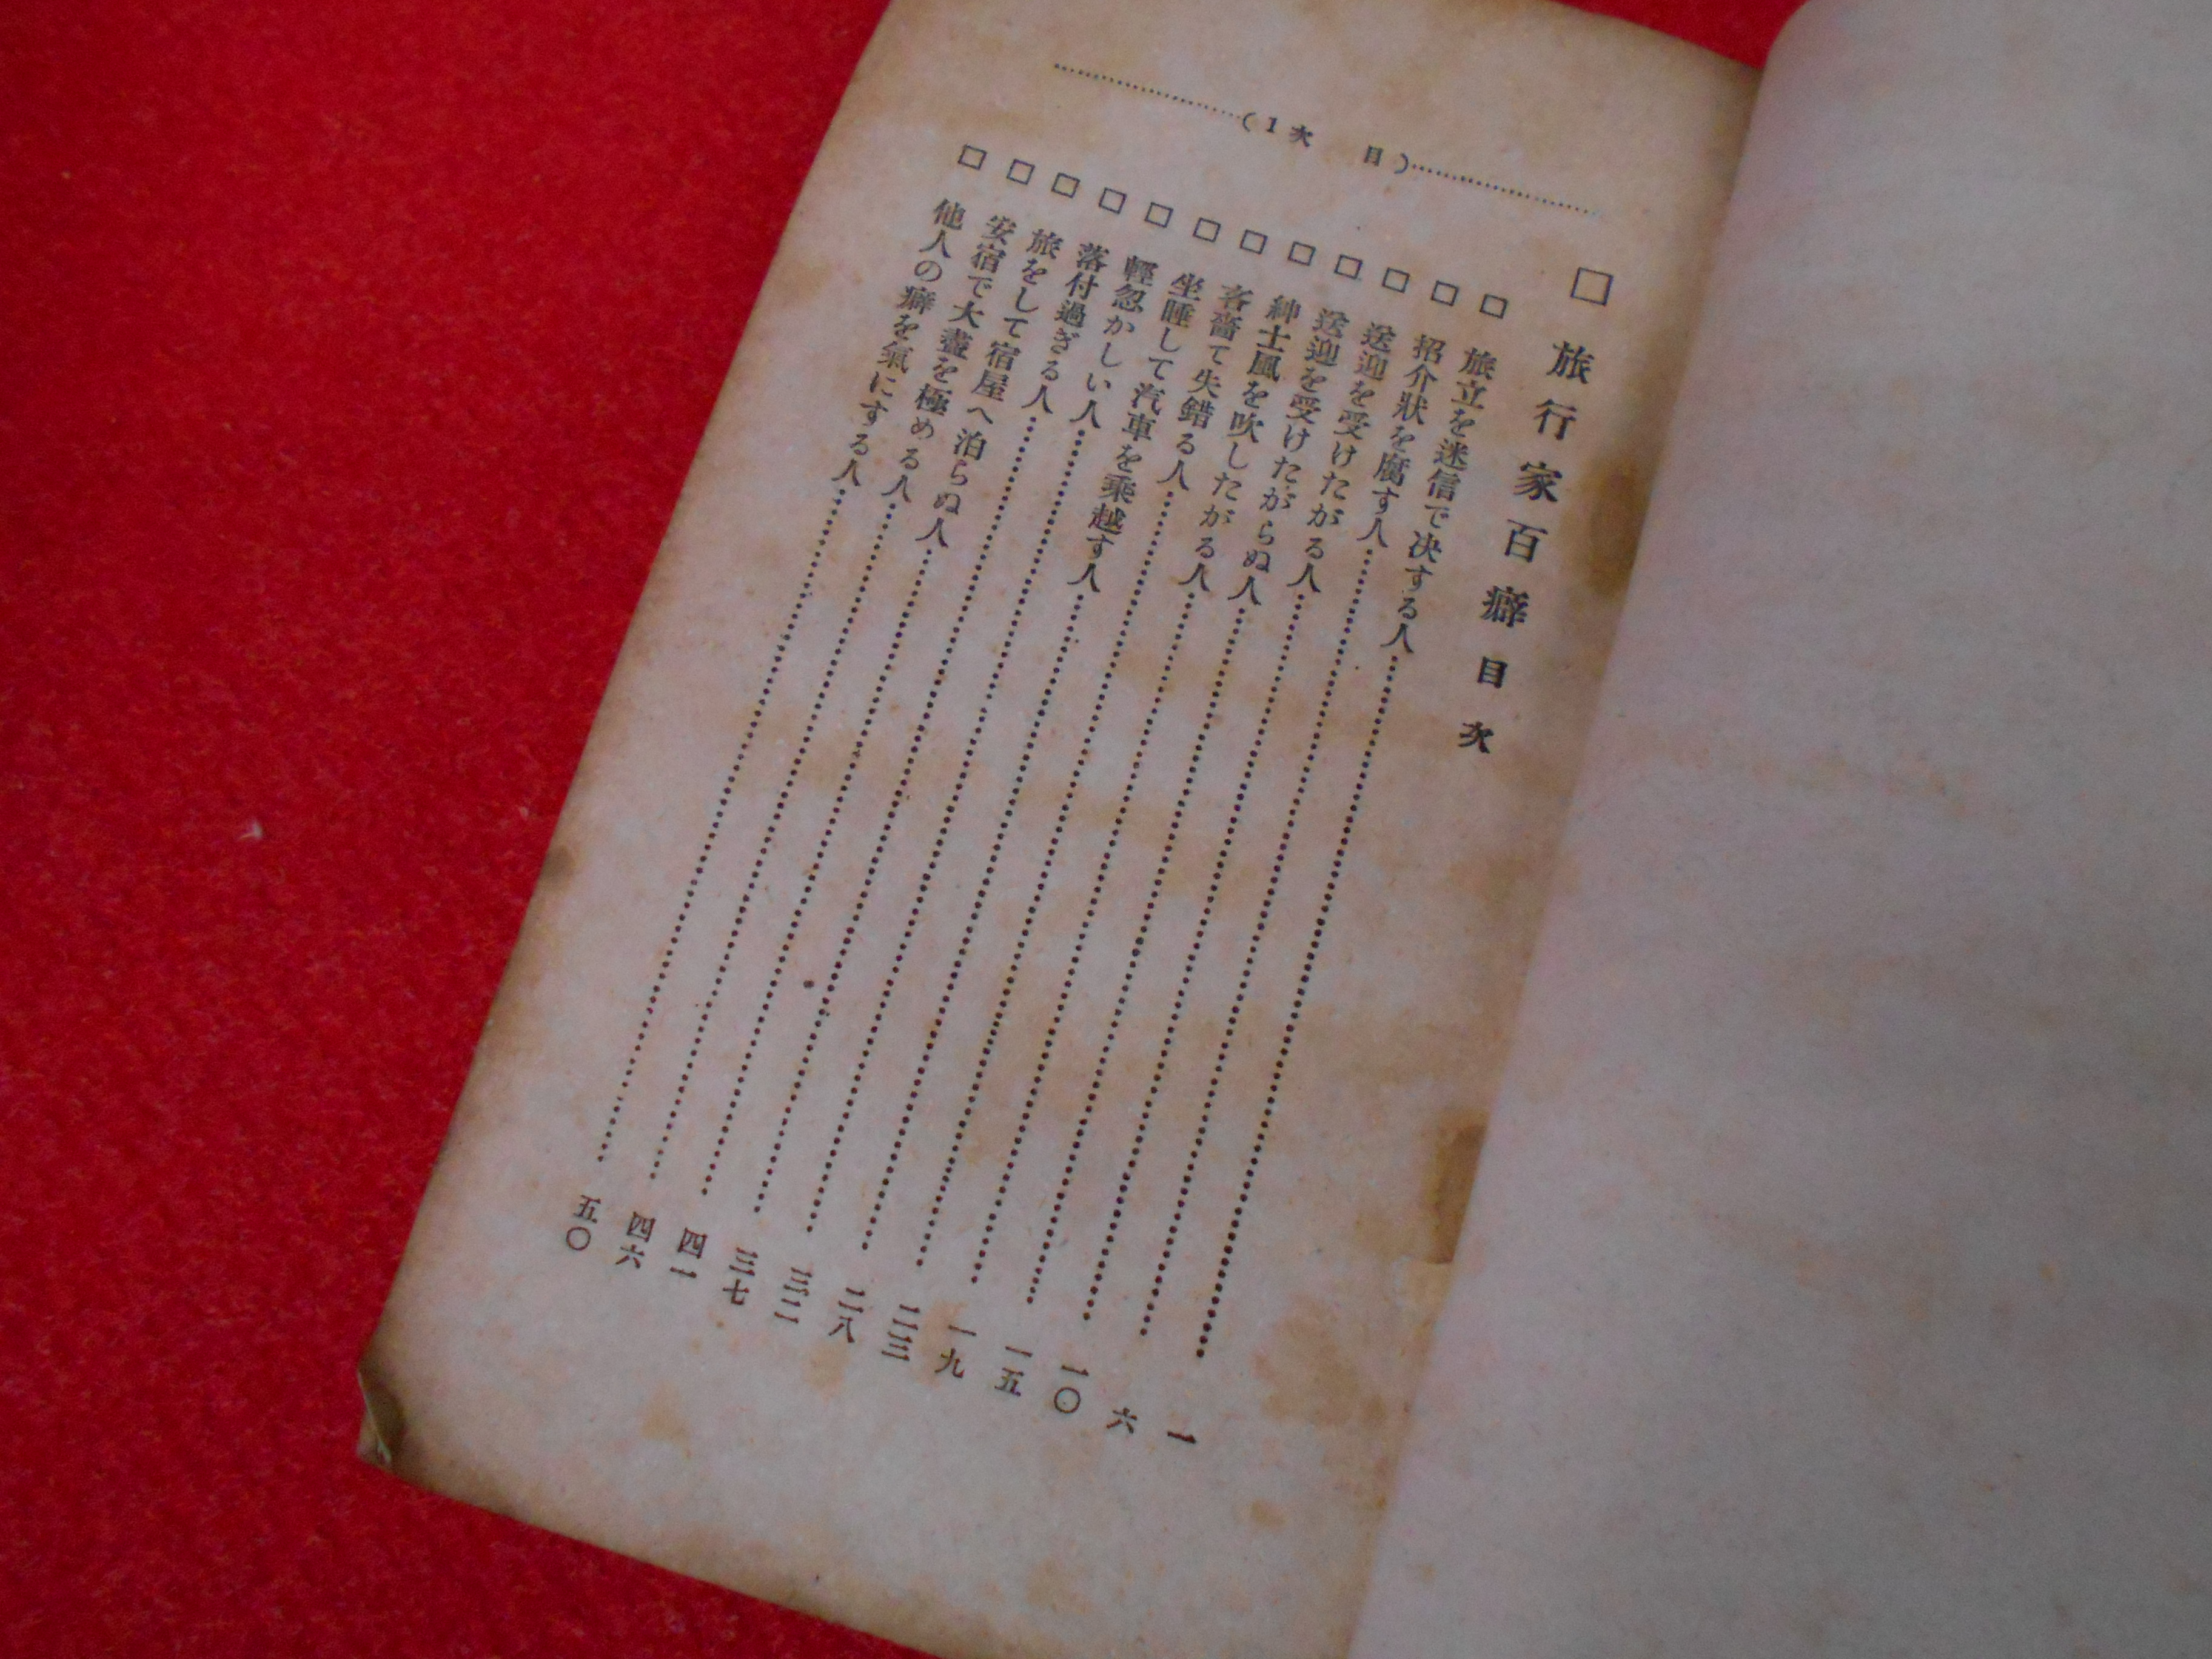 (1次　目)
□ 旅行家百癖目次
□ 旅立を迷信で决する人……一
□ 招介狀を腐す人……六
□ 送迎を受けたがる人……一〇
□ 送迎を受けたがらぬ人……一五
□ 紳士風を吹したがる人……一九
□ 吝嗇て失錯る人……二三
□ 坐睡して汽車を乘越す人……二八
□ 輕忽かしい人……三二
□ 落付過ぎる人……三七
□ 旅をして宿屋へ泊らぬ人……四一
□ 安宿で大盡を極める人……四六
□ 他人の癖を氣にする人……五〇